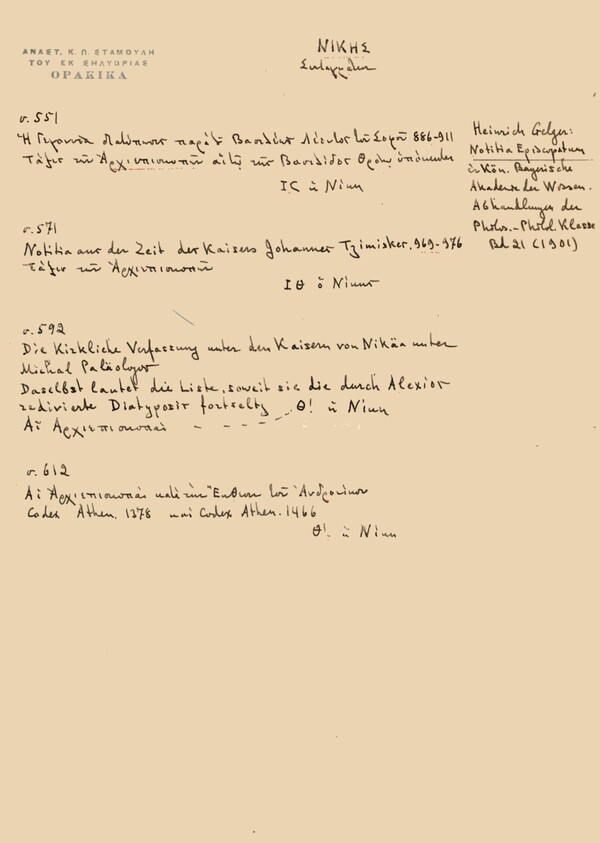 ΑΝΑΣΤ. Κ. Π. ΣΤΑΜΟΥΛΗ
ΤΟΥ ΕΚ ΣΗΛΥΒΡΙΑΣ
ΘΡΑΚΙΚΑ
ΝΙΚΗΣ
σ. 551
Ἡ διατύπωσις παρὰ τοῦ Βασιλέως Λέοντος τοῦ Σοφοῦ 886-911
Τάξις τῶν Ἀρχιεπισκοπῶν τῆς Βασιλίδος
Ις ἡ Νίκη
Heinrich Gelzer:
Notitia Episcopatum
Kön. Bayerische
Akademie der Wissen.
Abhandlungen der
Philos.-Philol. Klasse
Bd 21 (1901)
σ. 571
Notitia aus der Zeit des Kaisers Johannes Tzimiskes. 969-976
Τάξις τῶν Ἀρχιεπισκοπῶν
ΙΘ ὁ Νίκης
σ. 592
Die Kirkliche Verfassung unter den Kaisern von Nikäa unter
Michal Paläologos
Daselbst lautet die Liste, soweit sie die durch Alexios
redivierte Diatyposis fortseltz Θ! ἡ Νίκη
Αἱ Ἀρχιεπισκοπαὶ - - - -
σ. 612
Αἱ Ἀρχιεπισκοπαὶ κατὰ τὴν Ἔκθεσιν τοῦ Ἀνδρονίκου
Codex Athen. 1378 καὶ Codex Athen. 1466
Θ! ἡ Νίκη